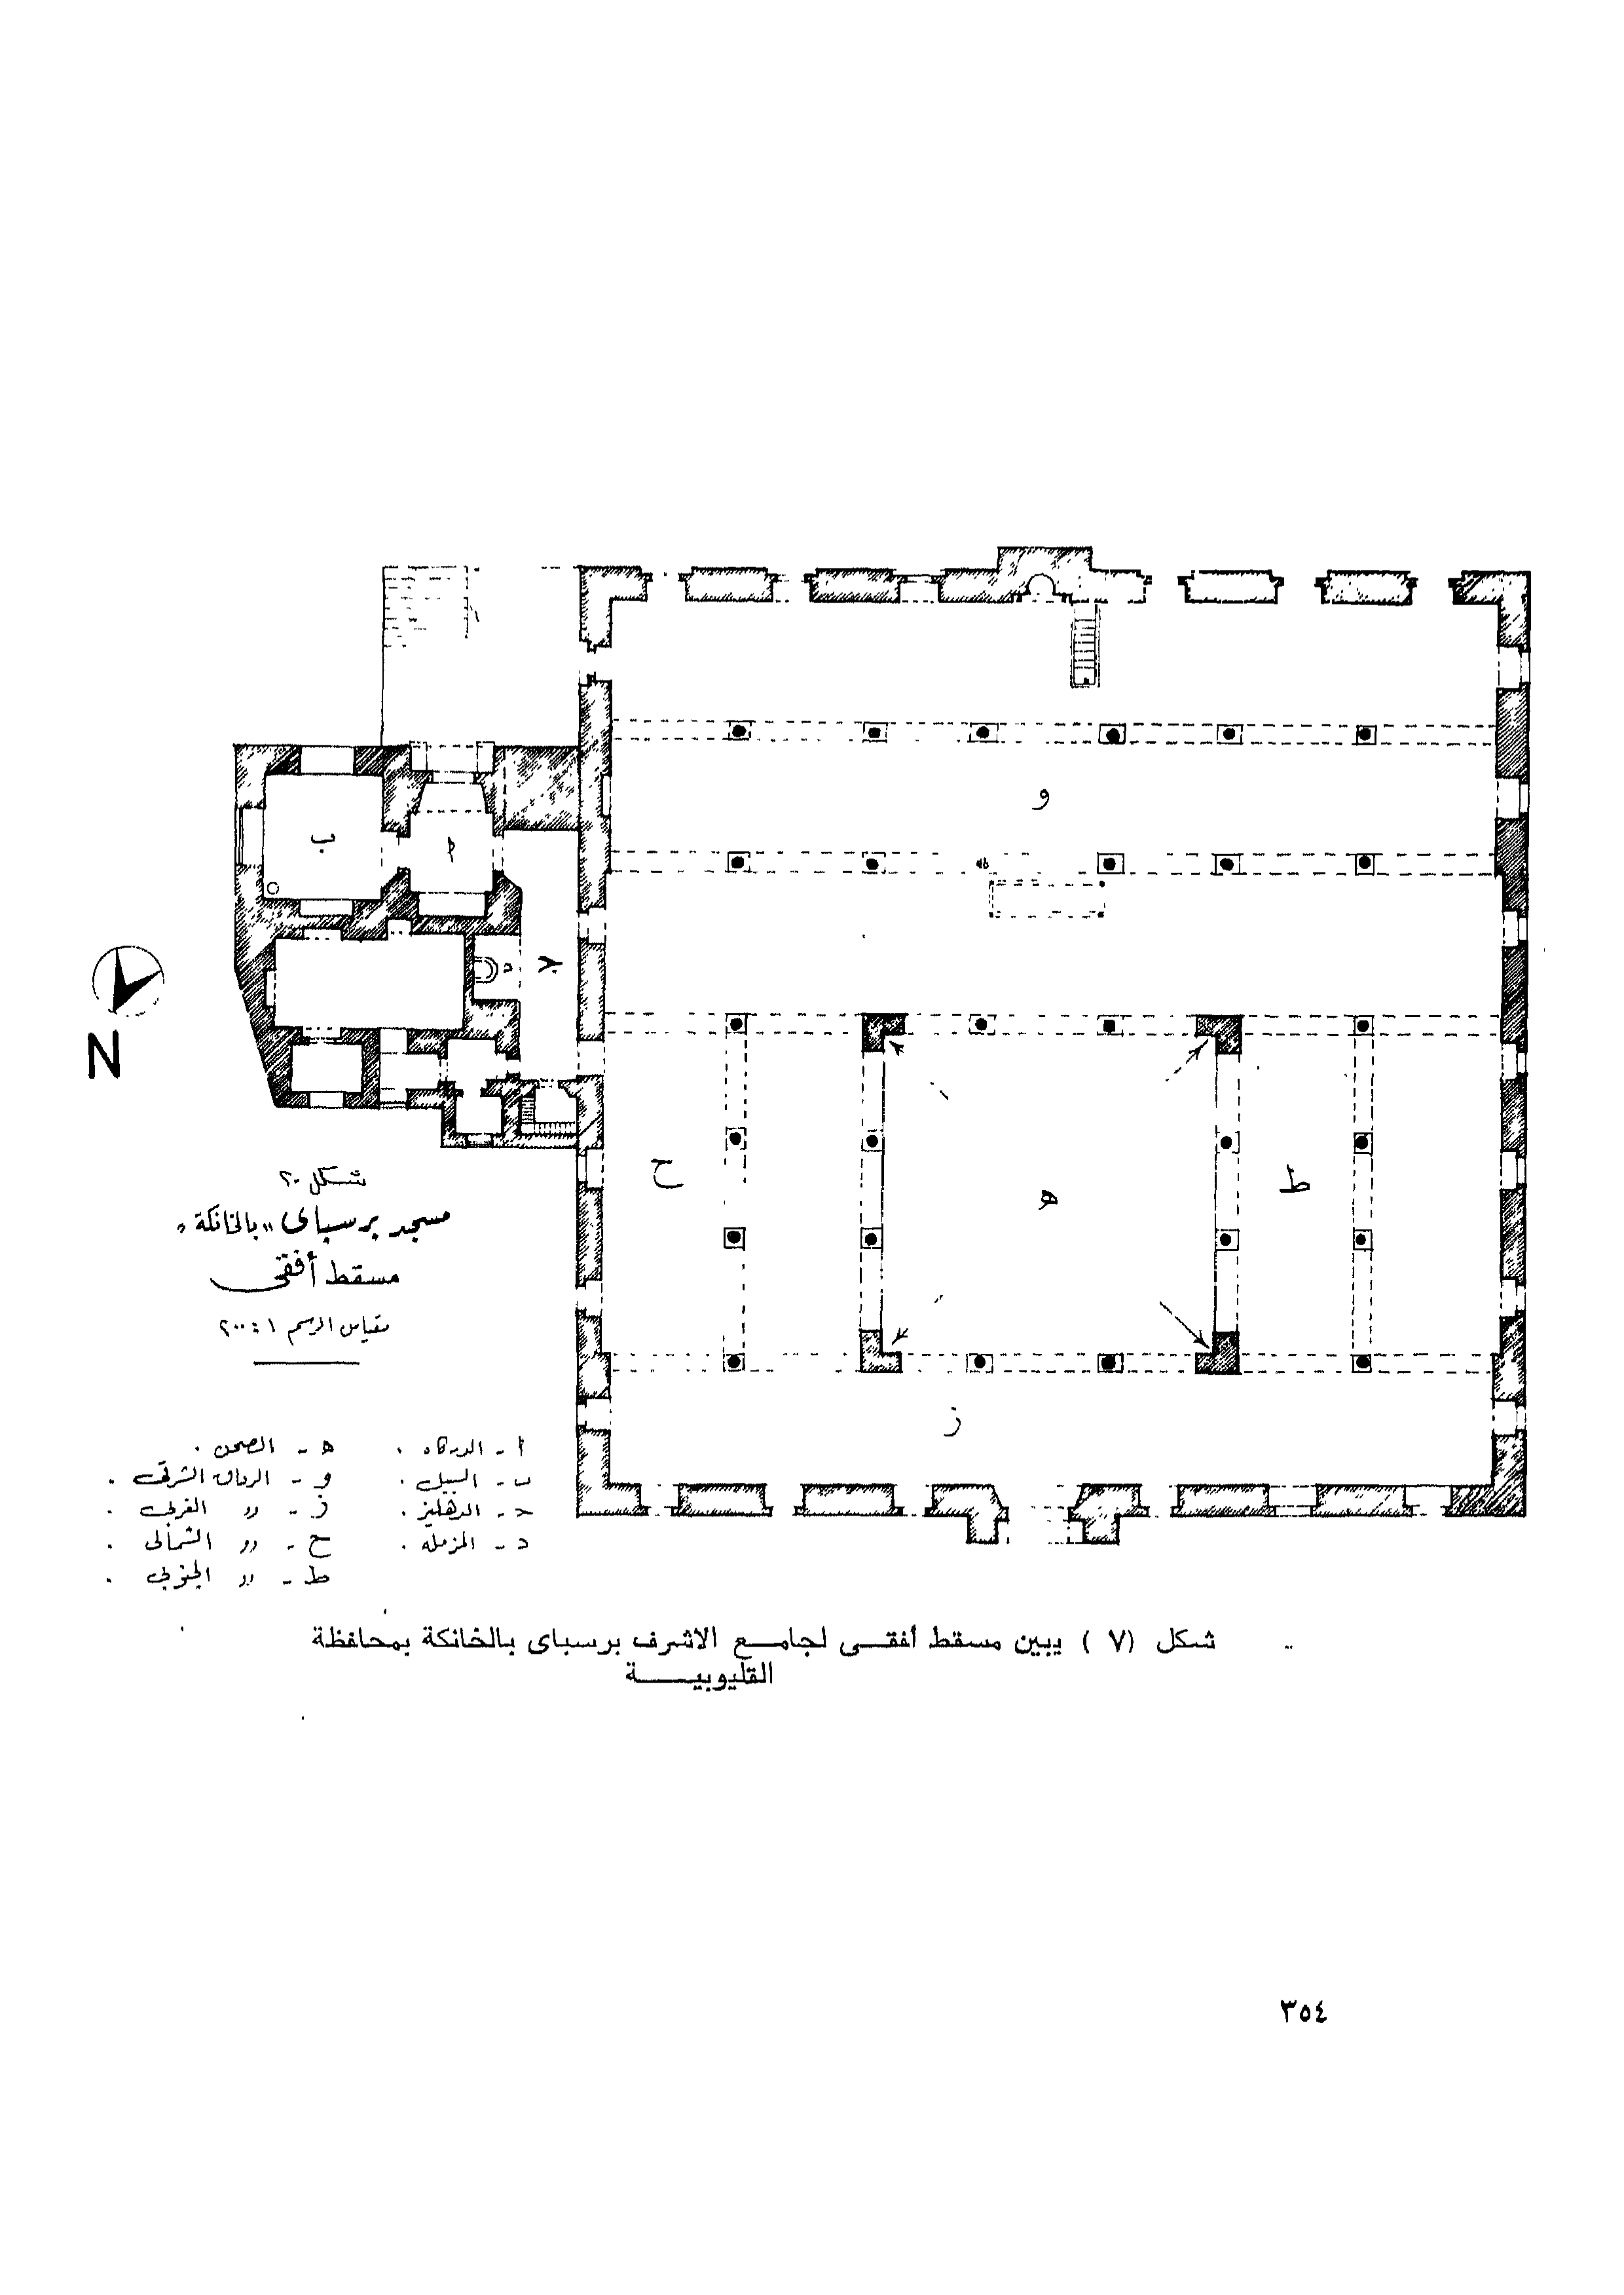 و
ب
ا
د
ج
N
ح
ه
ط
ز
شكل ٢٠
مسجد برسباى "بالخانكة"
مسقط أفقى
مقياس الرسم ١ : ٢٠٠
ا - الدركاه .
ب - السبيل .
ج - الدهليز .
د - المزمله .
ه - الصحن .
و - الرواق الشرقى .
ز - " الغربى .
ح - " الشمالى .
ط - " الجنوبى .
شكل (٧) يبين مسقط أفقى لجامع الاشرف برسباى بالخانكة بمحافظة
القليوبية
٣٥٤